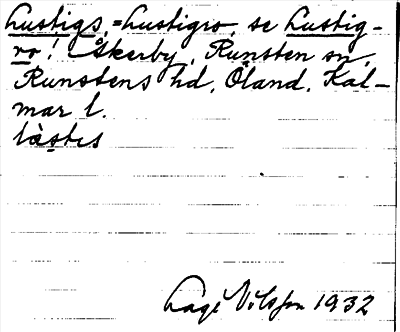 Lustigs, = Lustigro, se Lustig-
ro! Åkerby, Runsten sn,
Runstens hd, Öland, Kal-
mar l.
låstes
Lage Nilsson 1932